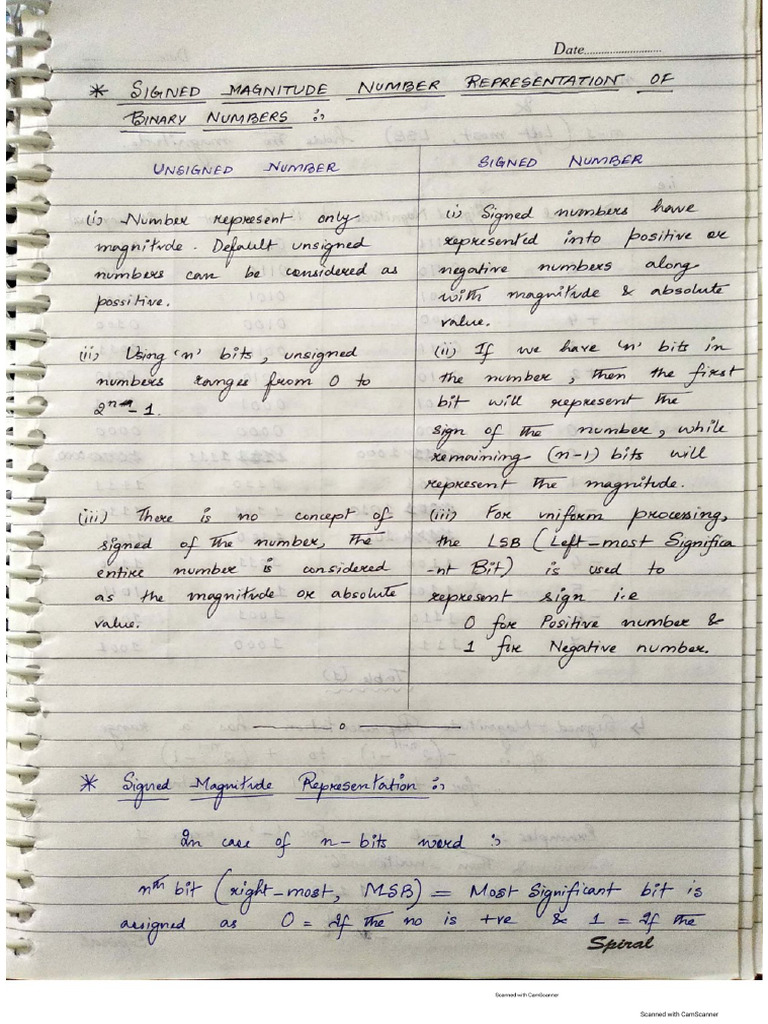 Date
* SIGNED MAGNITUDE NUMBER REPRESENTATION OF
BINARY NUMBERS :-
UNSIGNED NUMBER
(i) Number represent only
magnitude. Default unsigned
numbers can be considered as
possitive.
(ii) Using 'n' bits, unsigned
numbers ranges from 0 to
2ⁿ - 1.
(iii) There is no concept of
signed of the number, the
entire number is considered
as the magnitude or absolute
value.
SIGNED NUMBER
(i) Signed numbers have
represented into positive or
negative numbers along
with magnitude & absolute
value.
(ii) If we have 'n' bits in
the number, then the first
bit will represent the
sign of the number, while
remaining (n-1) bits will
represent the magnitude.
(iii) For uniform processing,
the LSB (Left-most Significa
-nt Bit) is used to
represent sign i.e
0 for Positive number &
1 for Negative number.
* Signed Magnitude Representation :-
In case of n-bits word :-
nth bit (right-most, MSB) = Most Significant bit is
assigned as 0 = If the no is +ve & 1 = If the
Spiral
Scanned with CamScanner
Scanned with CamScanner